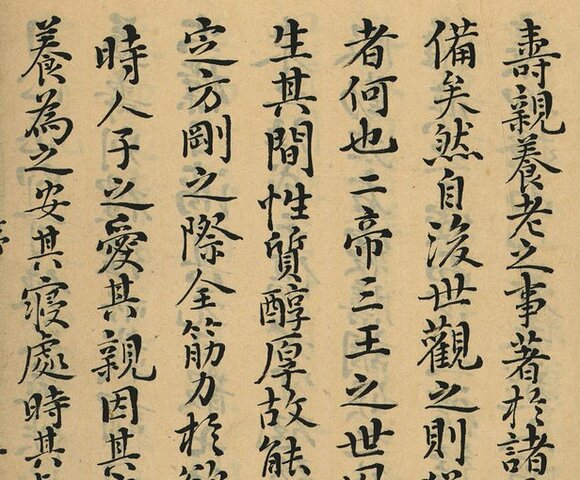 壽親養老之事著於諸
備矣然自後世觀之則
者何也二帝三王之世
生其間性質醇厚故能
定方剛之際全筋力於
時人子之愛其親因其
養為之安其寢處時其